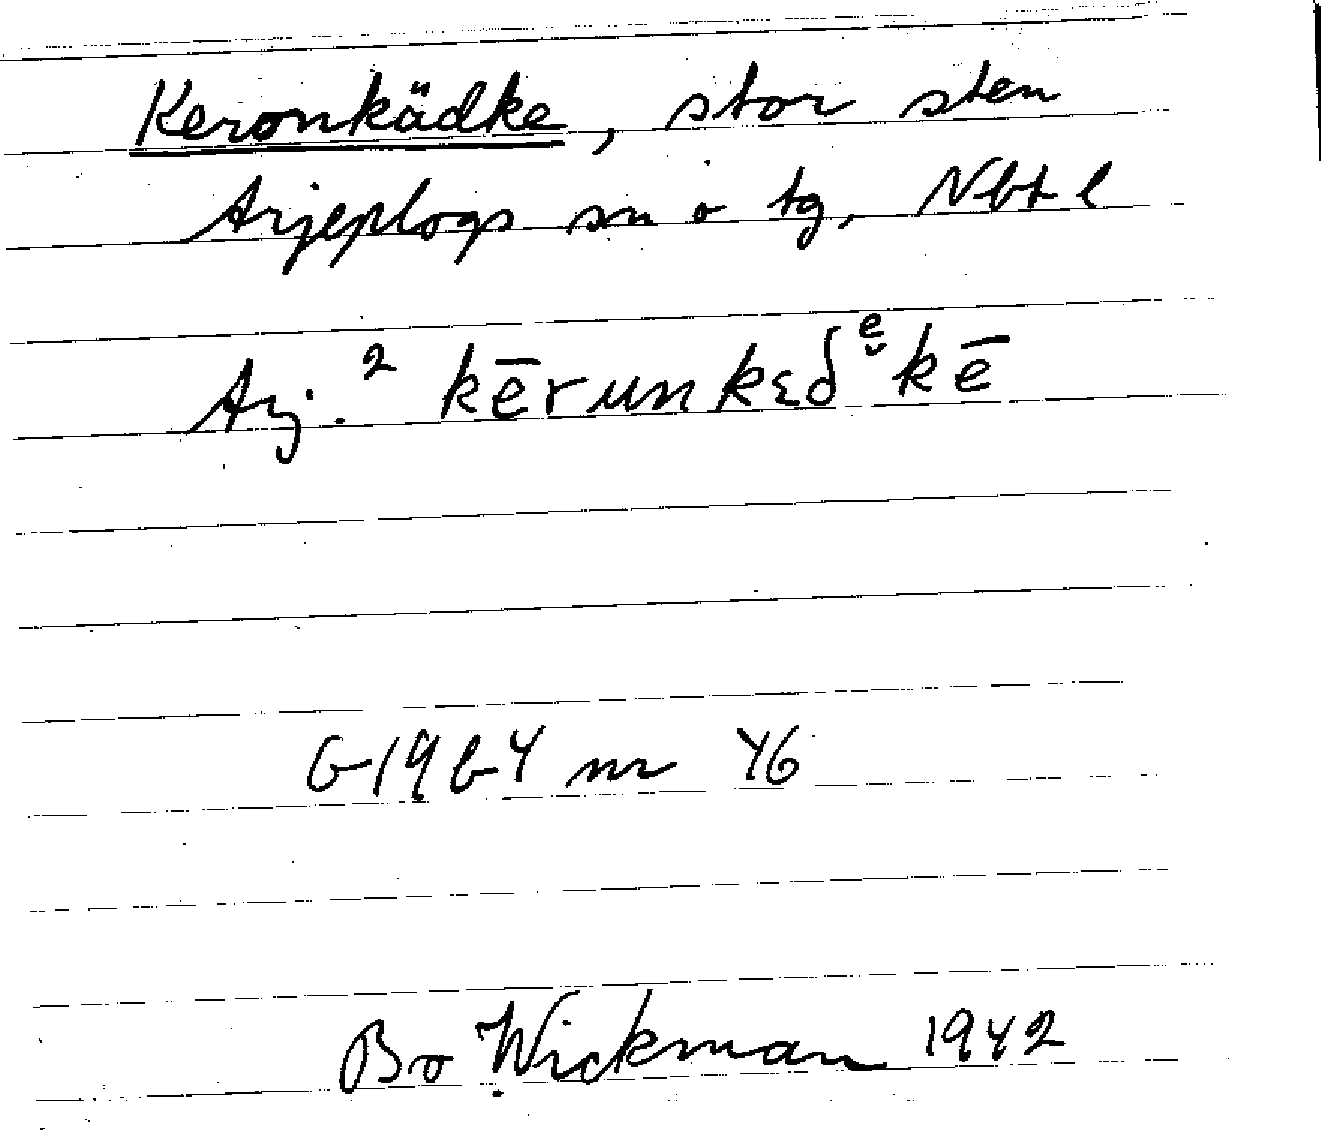 Keronkädke, stor sten
Arjeplogs sn o tg, Nbt l
Arj.² kērunkεδᵉ̮kē
G 19 b 4 nr 46
Bo Wickman 1942